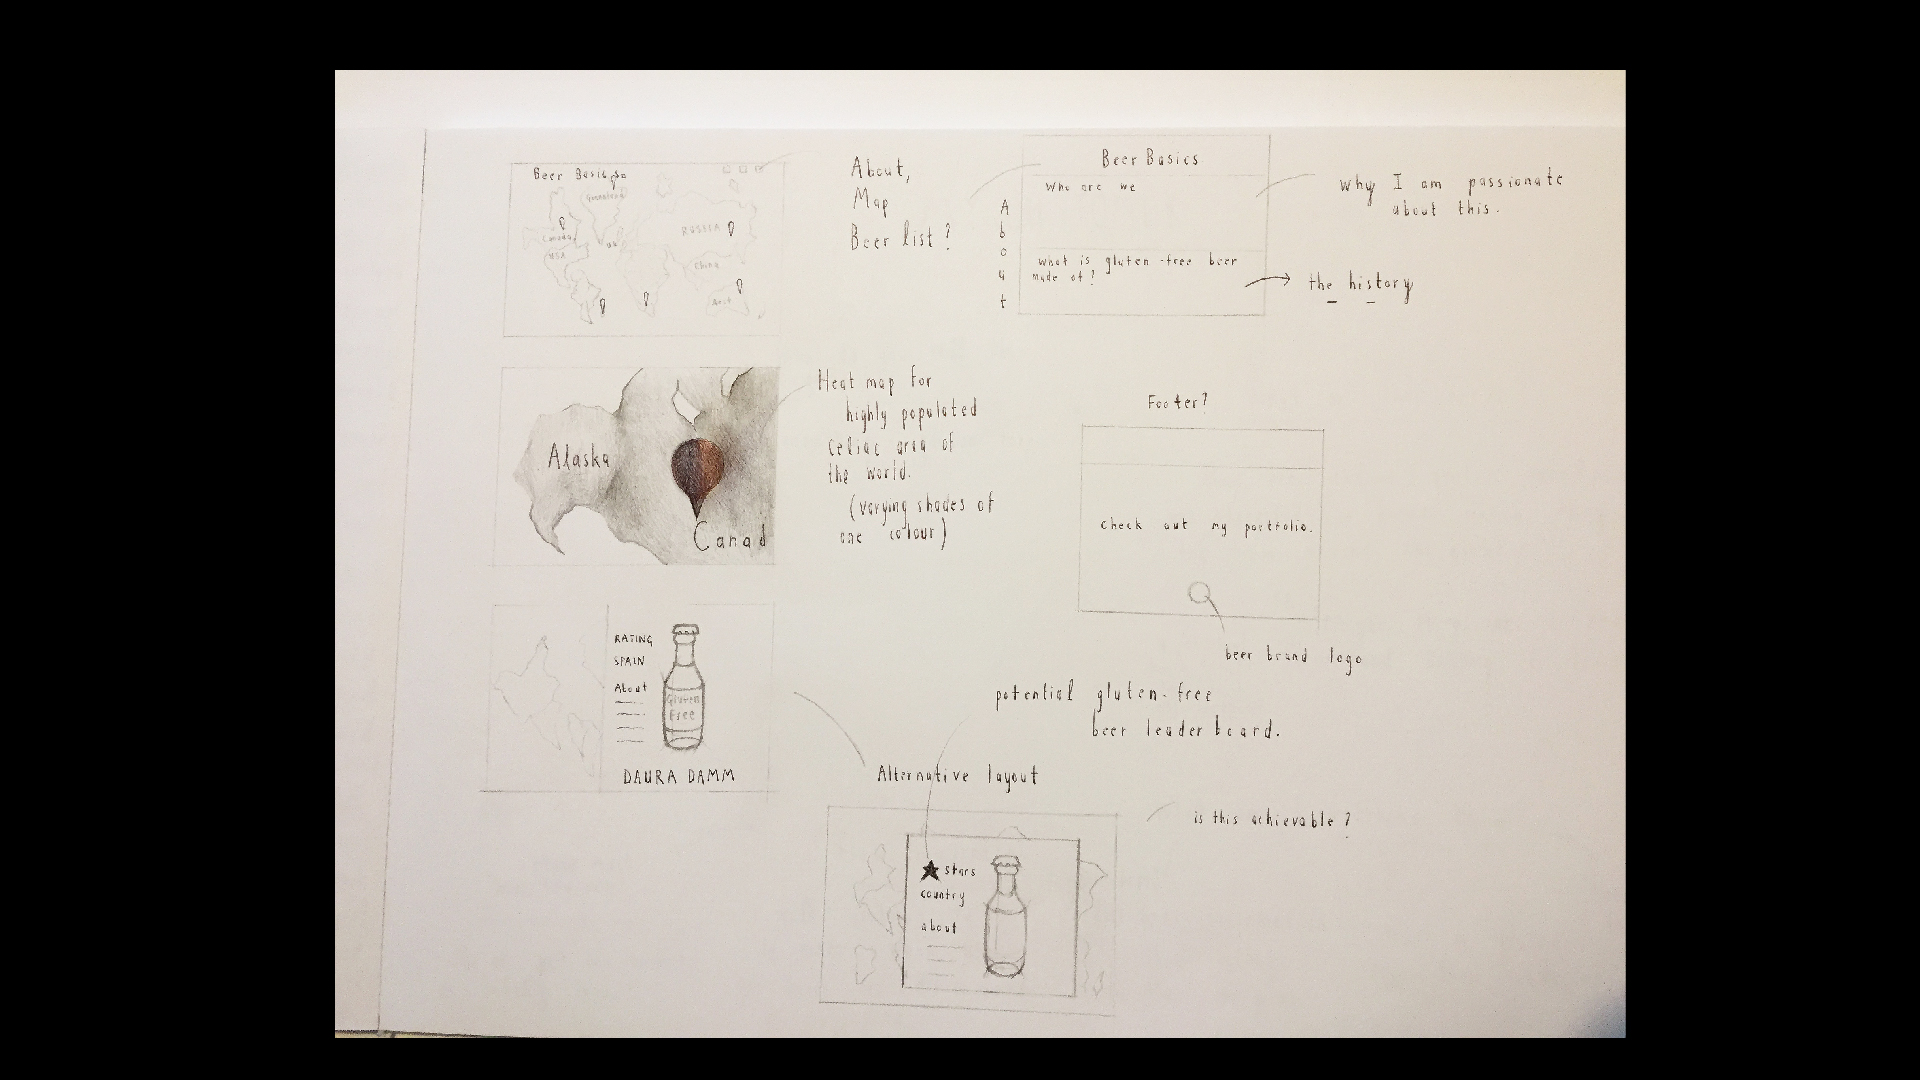 Beer Basics
Greenland
Canada
USA
UK
RUSSIA
China
Aust
About,
Map
Beer list?
About
Beer Basics
Who are we
What is gluten-free beer
made of?
why I am passionate
about this.
the history
Alaska
Canad
Heat map for
highly populated
Celiac area of
the world.
(varying shades of
one colour)
Footer?
Check out my portfolio.
beer brand logo
RATING
SPAIN
About
Gluten
Free
DAURA DAMM
potential gluten-free
beer leader board.
Alternative layout
is this achievable?
stars
country
about